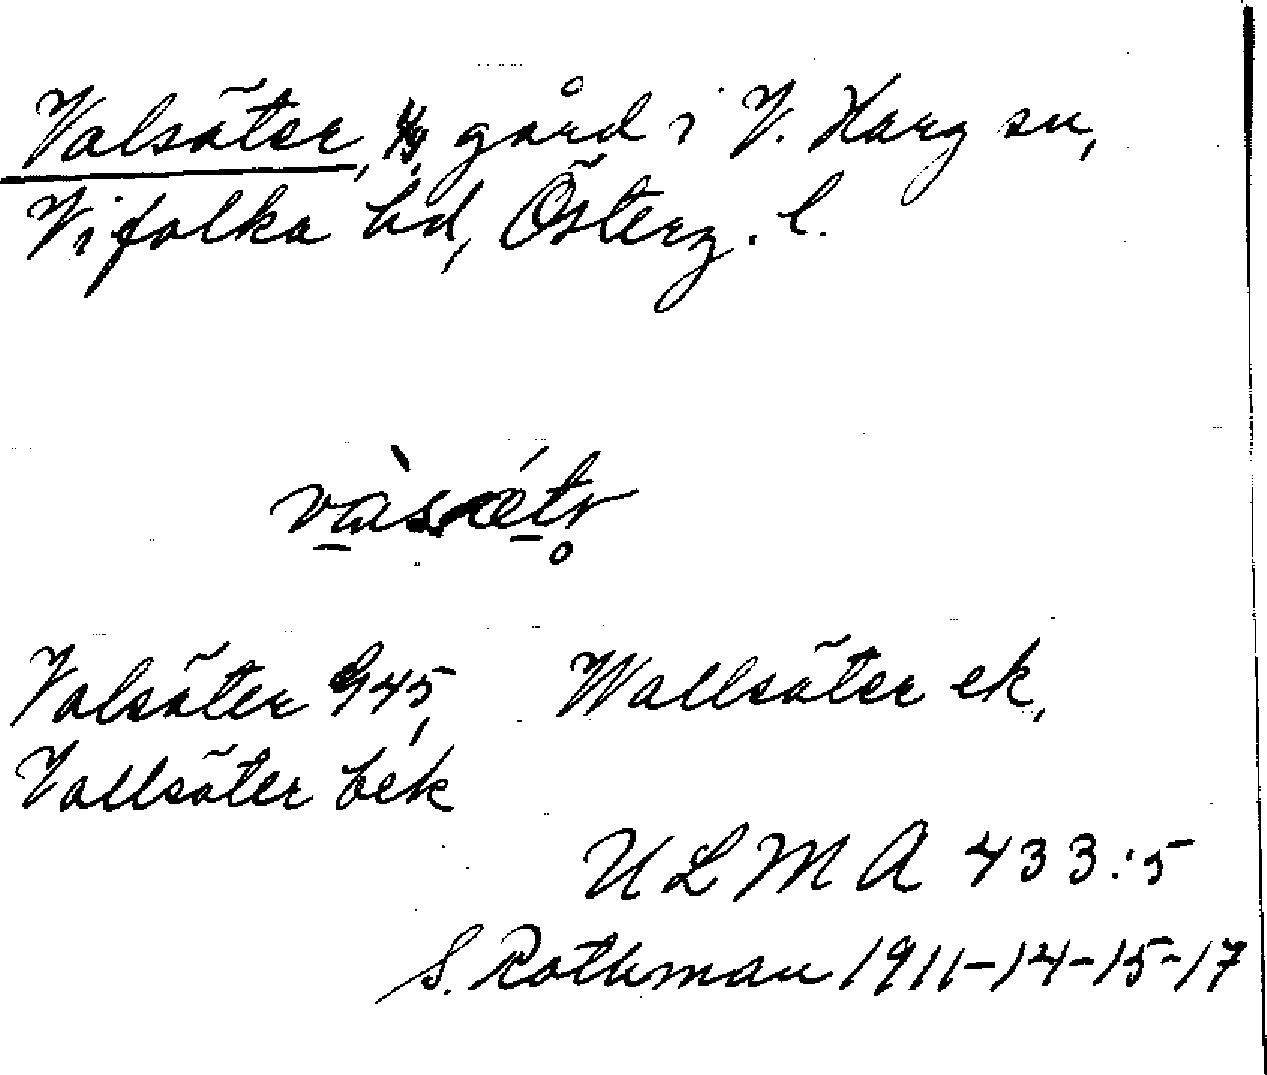 Valsäter, gård i V. Harg sn,
Vifolka hd, Österg. l.
Valsäter 945, Wallsäter ek,
Vallsäter bek
ULMA 433:5
S. Rothman 1911-14-15-17